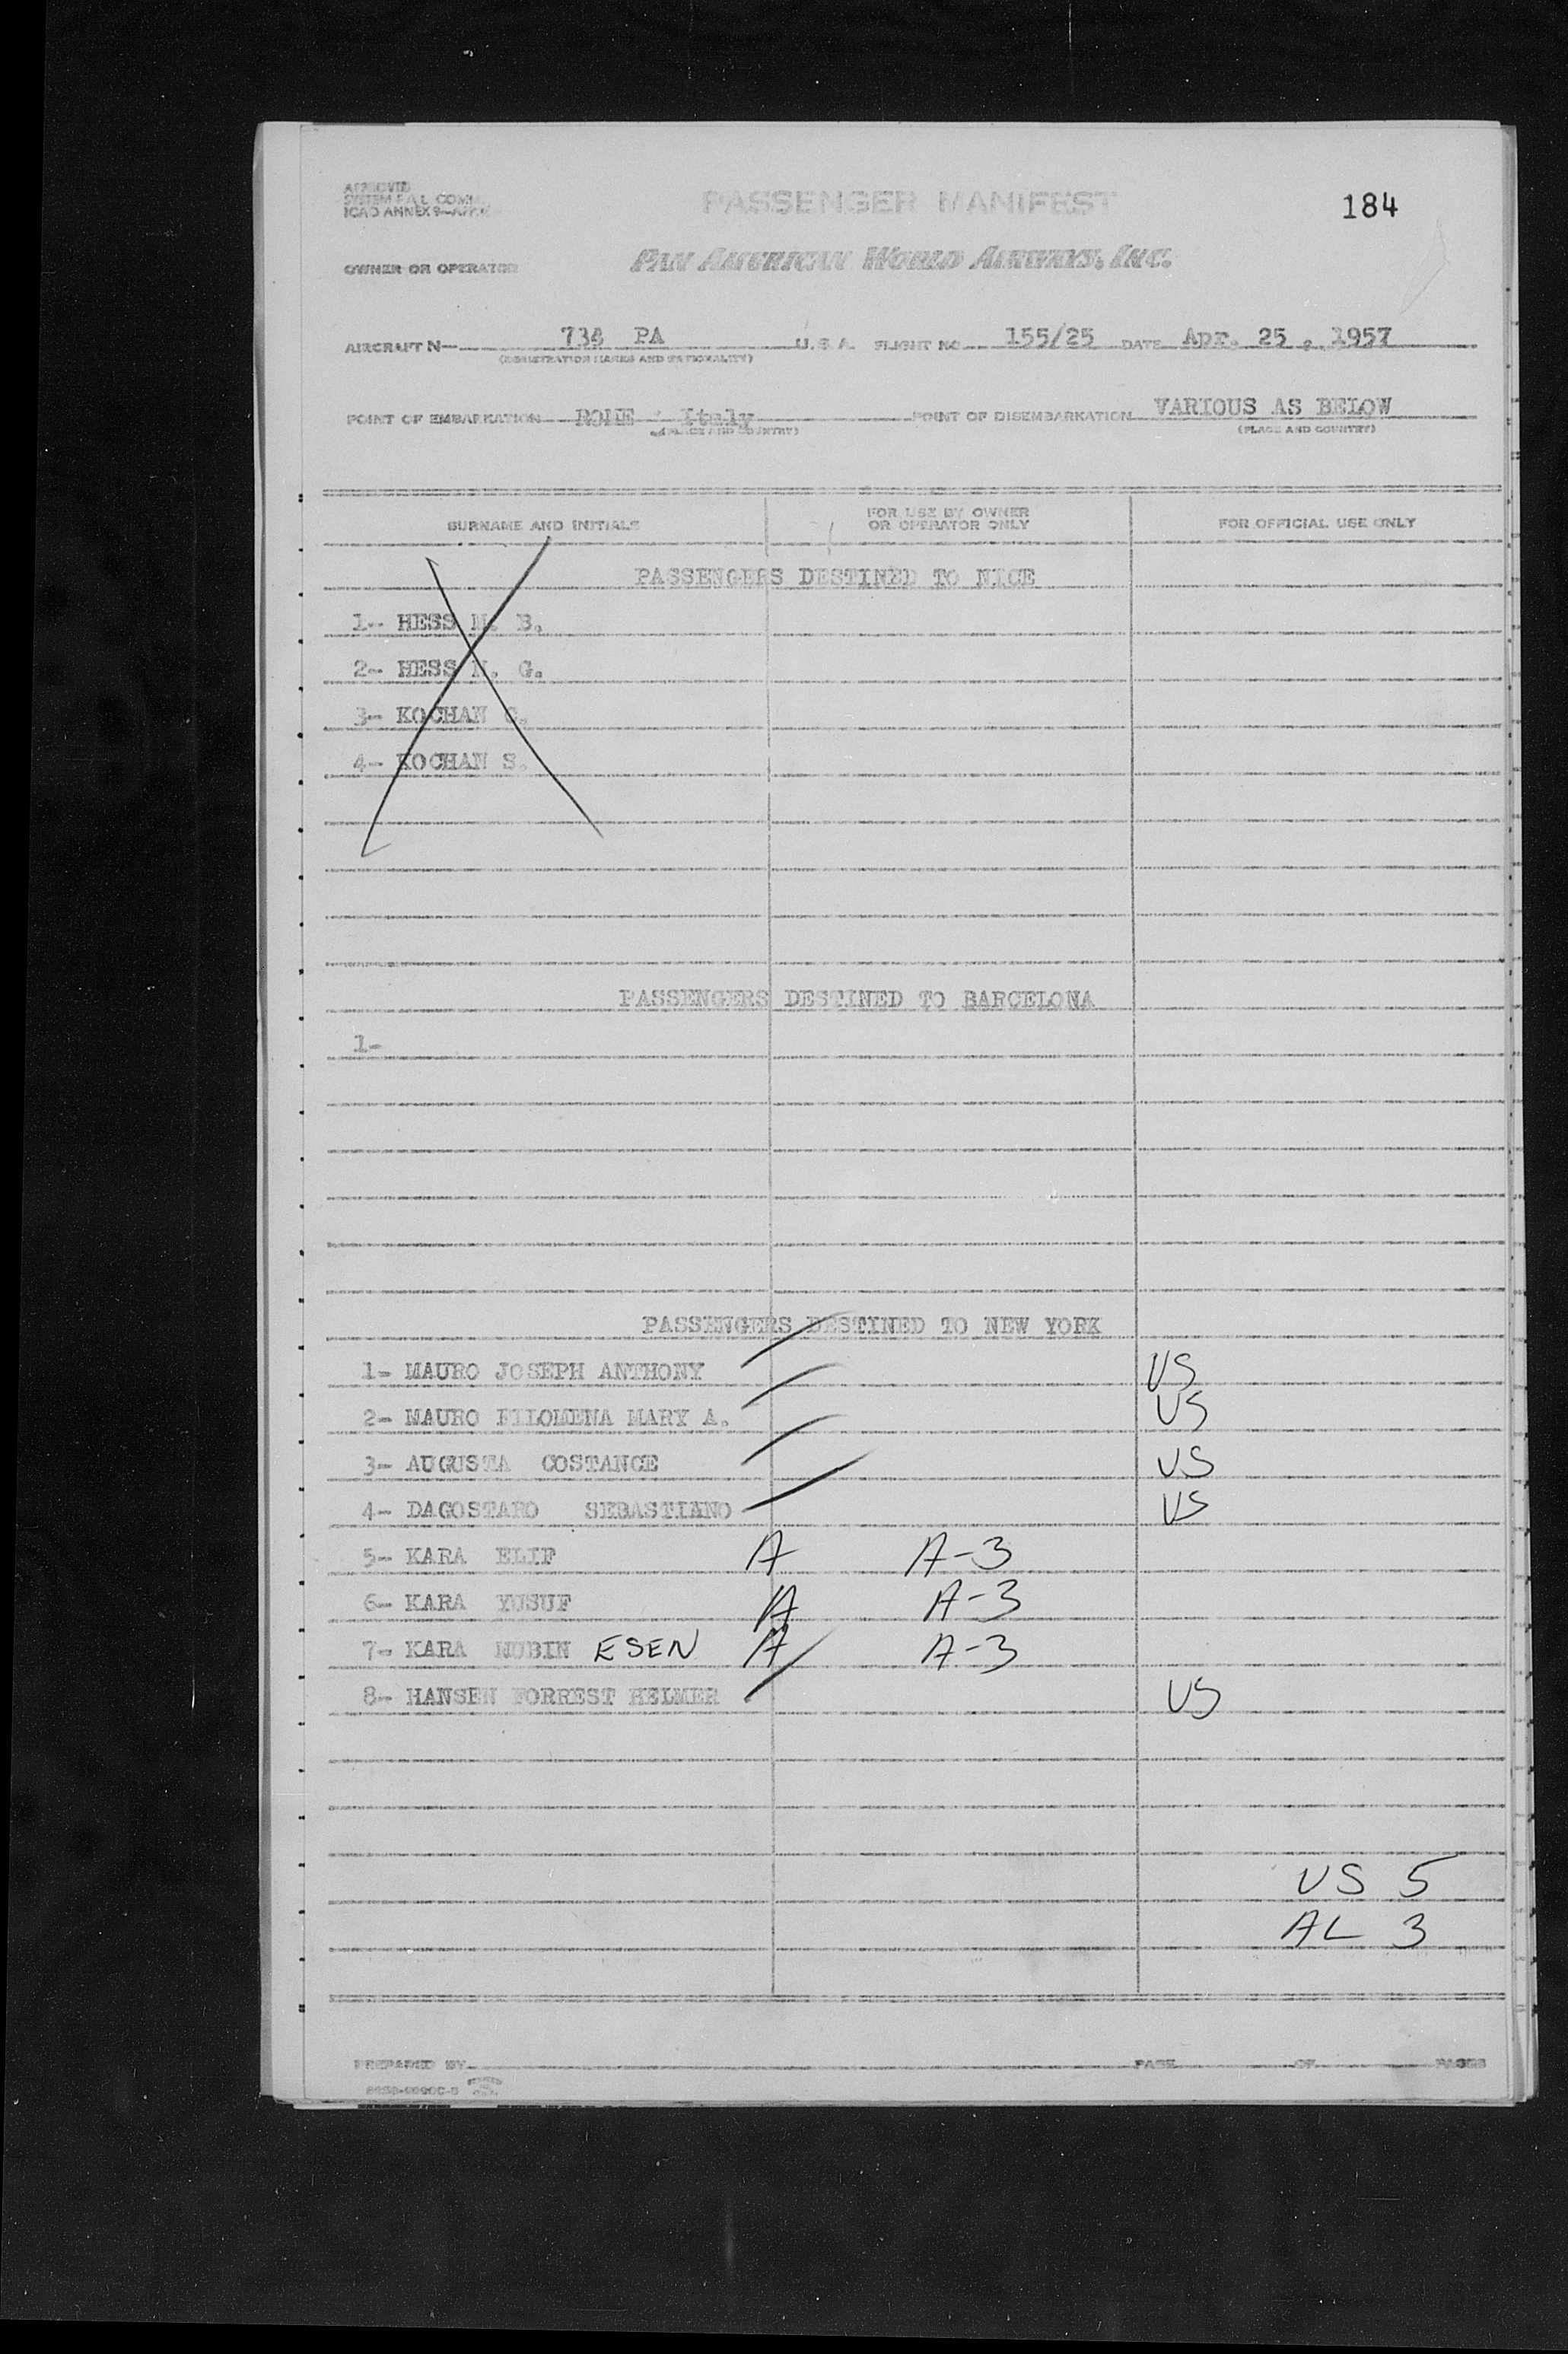 APPROVED
SYSTEM F.A.L. COMM.
ICAO ANNEX 9—
PASSENGER MANIFEST
184
OWNER OR OPERATOR
PAN AMERICAN WORLD AIRWAYS, INC.
AIRCRAFT N— 734 PA U.S.A. FLIGHT NO. 155/25 DATE Apr. 25 , 1957
(REGISTRATION MARKS AND NATIONALITY)
POINT OF EMBARKATION ROME Italy POINT OF DISEMBARKATION VARIOUS AS BELOW
(PLACE AND COUNTRY) (PLACE AND COUNTRY)
SURNAME AND INITIALS FOR USE BY OWNER OR OPERATOR ONLY FOR OFFICIAL USE ONLY
PASSENGERS DESTINED TO NICE
1- HESS M. B.
2- HESS G.
3- KOCHAN
4- KOCHAN S.
PASSENGERS DESTINED TO BARCELONA
1-
PASSENGERS DESTINED TO NEW YORK
1- MAURO JOSEPH ANTHONY US
2- MAURO FILOMENA MARY A. US
3- AUGUSTA COSTANCE US
4- DAGOSTARO SEBASTIANO US
5- KARA ELIF A A-3
6- KARA YUSUF A A-3
7- KARA MUBIN ESEN A A-3
8- HANSEN FORREST HELMER US
US 5
AL 3
PREPARED BY PAGE OF PAGES